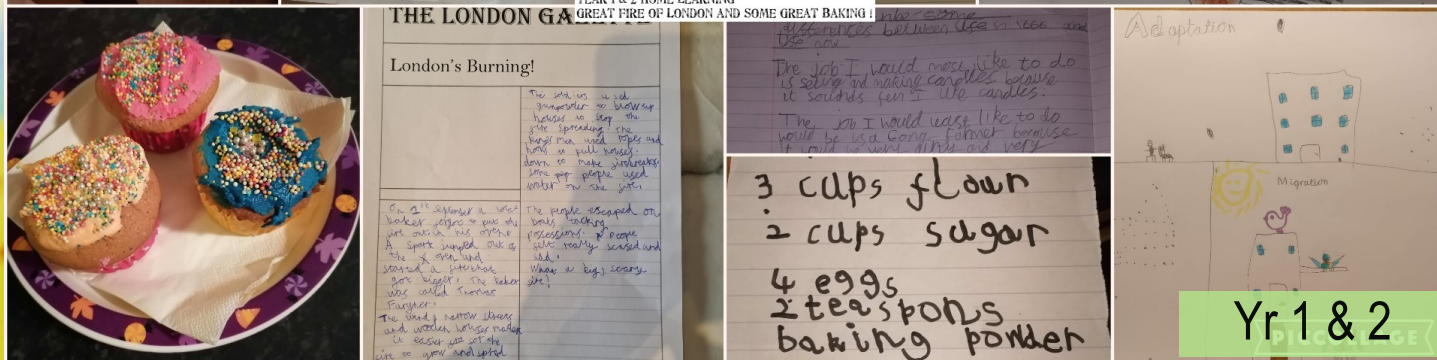 YEAR 1 & 2 HOME LEARNING
GREAT FIRE OF LONDON AND SOME GREAT BAKING !
THE LONDON GAZETTE
London's Burning!
The soldiers used
gunpowder to blow up
houses to stop the
fire spreading. The
kings men used ropes and
hooks to pull houses
down to make firebreaks.
some people used
water on the fire.
On 2nd September a
baker forgot to put the
fire out in his ovens.
A spark jumped out of
the oven and
started a fire that
got bigger. The baker
was called Thomas
Farynor.
The wind, narrow streets
and wooden houses made
it easier for the
fire to grow and spread
The people escaped on
boats taking
possessions. People
felt really scared and
sad.
What a big, scary
fire!
some
differences between use in 1666 and
use now
The job I would most like to do
is selling and making candles because
it sounds fun I like candles.
The job I would least like to do
would be is a Gong Farmer because
it would be very dirty and very
3 cups flour
2 cups sugar
4 eggs
2 teaspons
baking powder
Adaptation
Migration
Yr 1 & 2
PICCOLLAGE